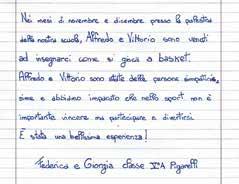 Nei mesi di novembre e dicembre presso la palestra
della nostra scuola, Alfredo e Vittorio sono venuti
ad insegnarci come si gioca a basket.
Alfredo e Vittorio sono state delle persone simpatiche,
sime e abbiamo imparato che nello sport non è
importante vincere ma partecipare e divertirsi.
È stata una bellissima esperienza!
Federica e Giorgia classe VªA